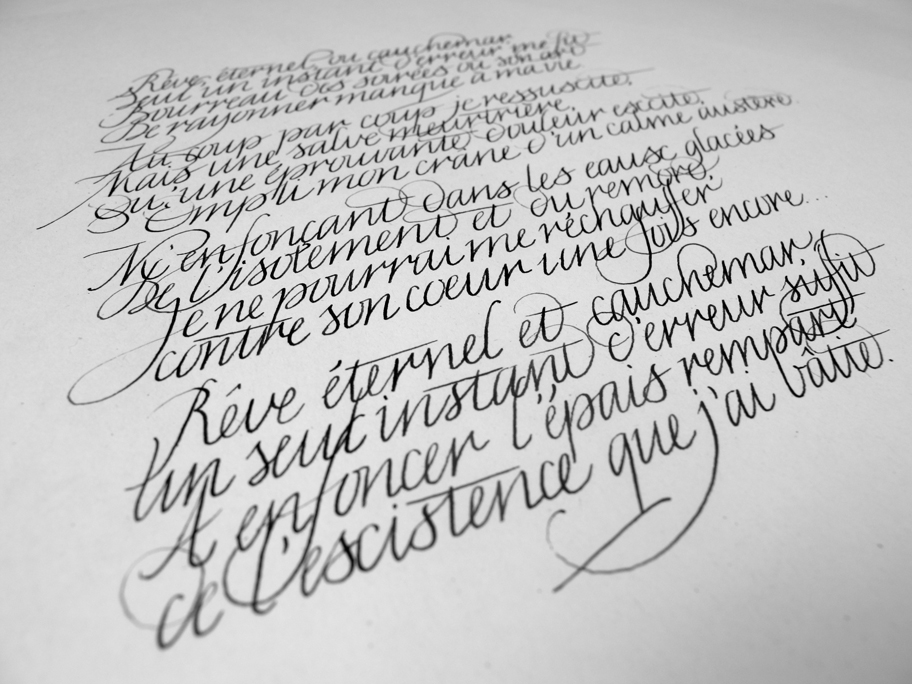 Rêve, éternel, ou cauchemar,
Seul un instant d'erreur me fu
Bourreau des soirées ou son art
De rayonner manque à ma vie
Au coup par coup je ressuscite,
Mais une salve meurtrière,
Qu'une éprouvante douleur excite,
Empli mon crâne d'un calme austère.
M'enfonçant dans les eaux glacées
De l'isolement et du remord,
Je ne pourrai me réchauffer
contre son coeur une fois encore...
Rêve éternel et cauchemar,
Un seul instant d'erreur suffit
A enfoncer l'épais rempart
de l'existence que j'ai bâtie.